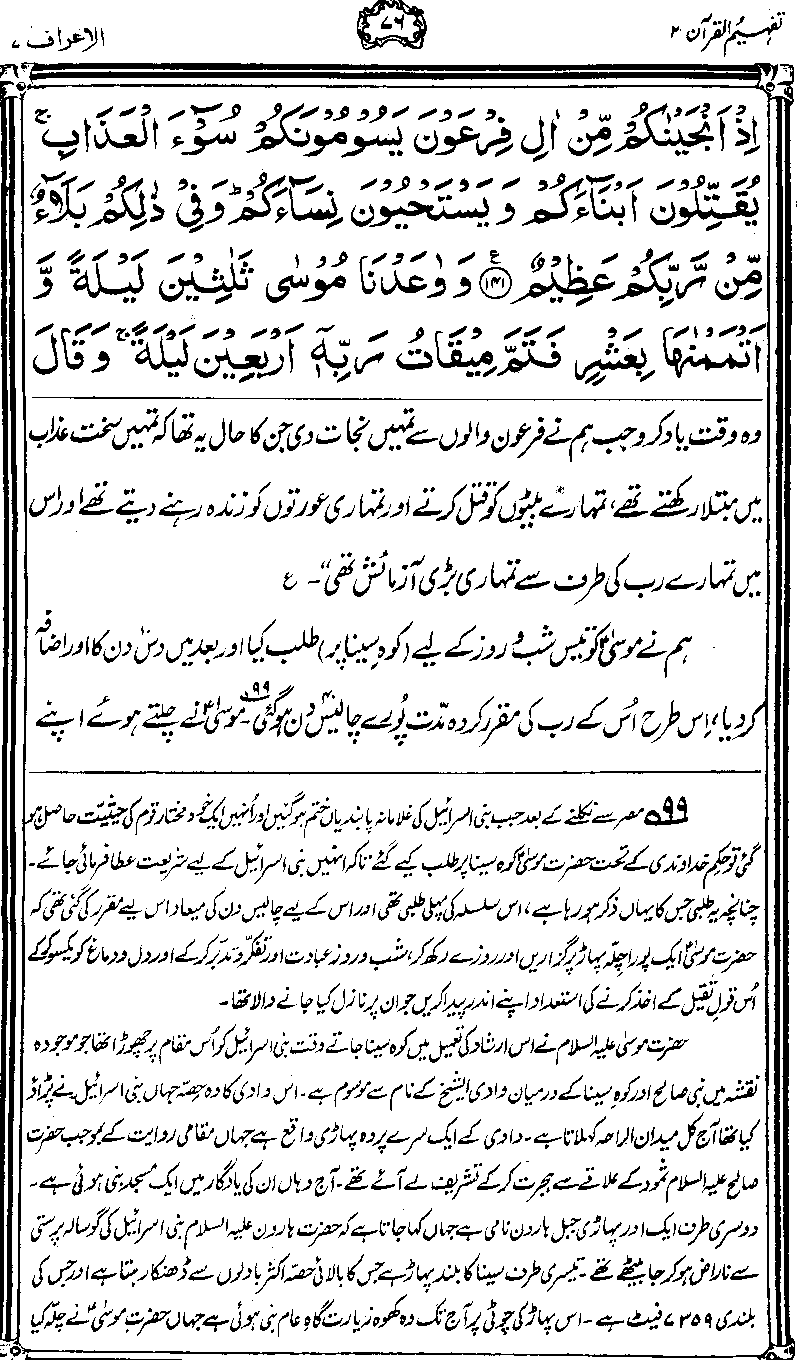 تفہیم القرآن ۲
۷۶
الاعراف ۷
اِذْ اَنْجَيْنٰكُمْ مِّنْ اٰلِ فِرْعَوْنَ يَسُوْمُوْنَكُمْ سُوْٓءَ الْعَذَابِ ۚ
يُقَتِّلُوْنَ اَبْنَآءَكُمْ وَ يَسْتَحْيُوْنَ نِسَآءَكُمْ ؕ وَفِيْ ذٰلِكُمْ بَلَآءٌ
مِّنْ رَّبِّكُمْ عَظِيْمٌ ﴿۱۴۱﴾ ع وَ وٰعَدْنَا مُوْسٰى ثَلٰثِيْنَ لَيْلَةً وَّ
اَتْمَمْنٰهَا بِعَشْرٍ فَتَمَّ مِيْقَاتُ رَبِّهٖٓ اَرْبَعِيْنَ لَيْلَةً ۚ وَقَالَ
وہ وقت یاد کرو جب ہم نے فرعون والوں سے تمہیں نجات دی جن کا حال یہ تھا کہ تمہیں سخت عذاب
میں مبتلا رکھتے تھے، تمہارے بیٹوں کو قتل کرتے اور تمہاری عورتوں کو زندہ رہنے دیتے تھے اور اس
میں تمہارے رب کی طرف سے تمہاری بڑی آزمائش تھی“۔ ع
ہم نے موسیٰؑ کو تیس شب و روز کے لیے (کوہِ سینا پر) طلب کیا اور بعد میں دس دن کا اور اضافہ
کر دیا، اِس طرح اُس کے رب کی مقرر کردہ مدّت پُورے چالیس دن ہو گئی۔۹۹ موسیٰؑ نے چلتے ہوئے اپنے
۹۹ مصر سے نکلنے کے بعد جب بنی اسرائیل کی غلامانہ پابندیاں ختم ہو گئیں اور اُنہیں ایک خود مختار قوم کی حیثیت حاصل ہو
گئی تو حکمِ خداوندی کے تحت حضرت موسیٰؑ کوہِ سینا پر طلب کیے گئے تاکہ انہیں بنی اسرائیل کے لیے شریعت عطا فرمائی جائے۔
چنانچہ یہ طلبی جس کا یہاں ذکر ہو رہا ہے، اس سلسلہ کی پہلی طلبی تھی اور اس کے لیے چالیس دن کی میعاد اس لیے مقرر کی گئی تھی کہ
حضرت موسیٰؑ ایک پورا چلّہ پہاڑ پر گزاریں اور روزے رکھ کر، شب و روز عبادت اور تفکّر و تدبّر کر کے اور دل و دماغ کو یکسو کر کے
اُس قولِ ثقیل کے اخذ کرنے کی استعداد اپنے اندر پیدا کریں جو ان پر نازل کیا جانے والا تھا۔
حضرت موسیٰ علیہ السلام نے اس ارشاد کی تعمیل میں کوہِ سینا جاتے وقت بنی اسرائیل کو اُس مقام پر چھوڑا تھا جو موجودہ
نقشہ میں بنی صالح اور کوہِ سینا کے درمیان وادی الشیخ کے نام سے موسوم ہے۔ اس وادی کا وہ حصہ جہاں بنی اسرائیل نے پڑاؤ
کیا تھا آج کل میدان الراحہ کہلاتا ہے۔ وادی کے ایک سرے پر وہ پہاڑی واقع ہے جہاں مقامی روایت کے بموجب حضرت
صالح علیہ السلام ثمود کے علاقے سے ہجرت کر کے تشریف لے آئے تھے۔ آج وہاں ان کی یادگار میں ایک مسجد بنی ہوئی ہے۔
دوسری طرف ایک اور پہاڑی جبل ہارون نامی ہے جہاں کہا جاتا ہے کہ حضرت ہارون علیہ السلام بنی اسرائیل کی گوسالہ پرستی
سے ناراض ہو کر جا بیٹھے تھے۔ تیسری طرف سینا کا بلند پہاڑ ہے جس کا بالائی حصہ اکثر بادلوں سے ڈھنکا رہتا ہے اور جس کی
بلندی ۷۳۵۹ فیٹ ہے۔ اس پہاڑ کی چوٹی پر آج تک وہ کھوہ زیارت گاہِ عام بنی ہوئی ہے جہاں حضرت موسیٰؑ نے چلّہ کیا